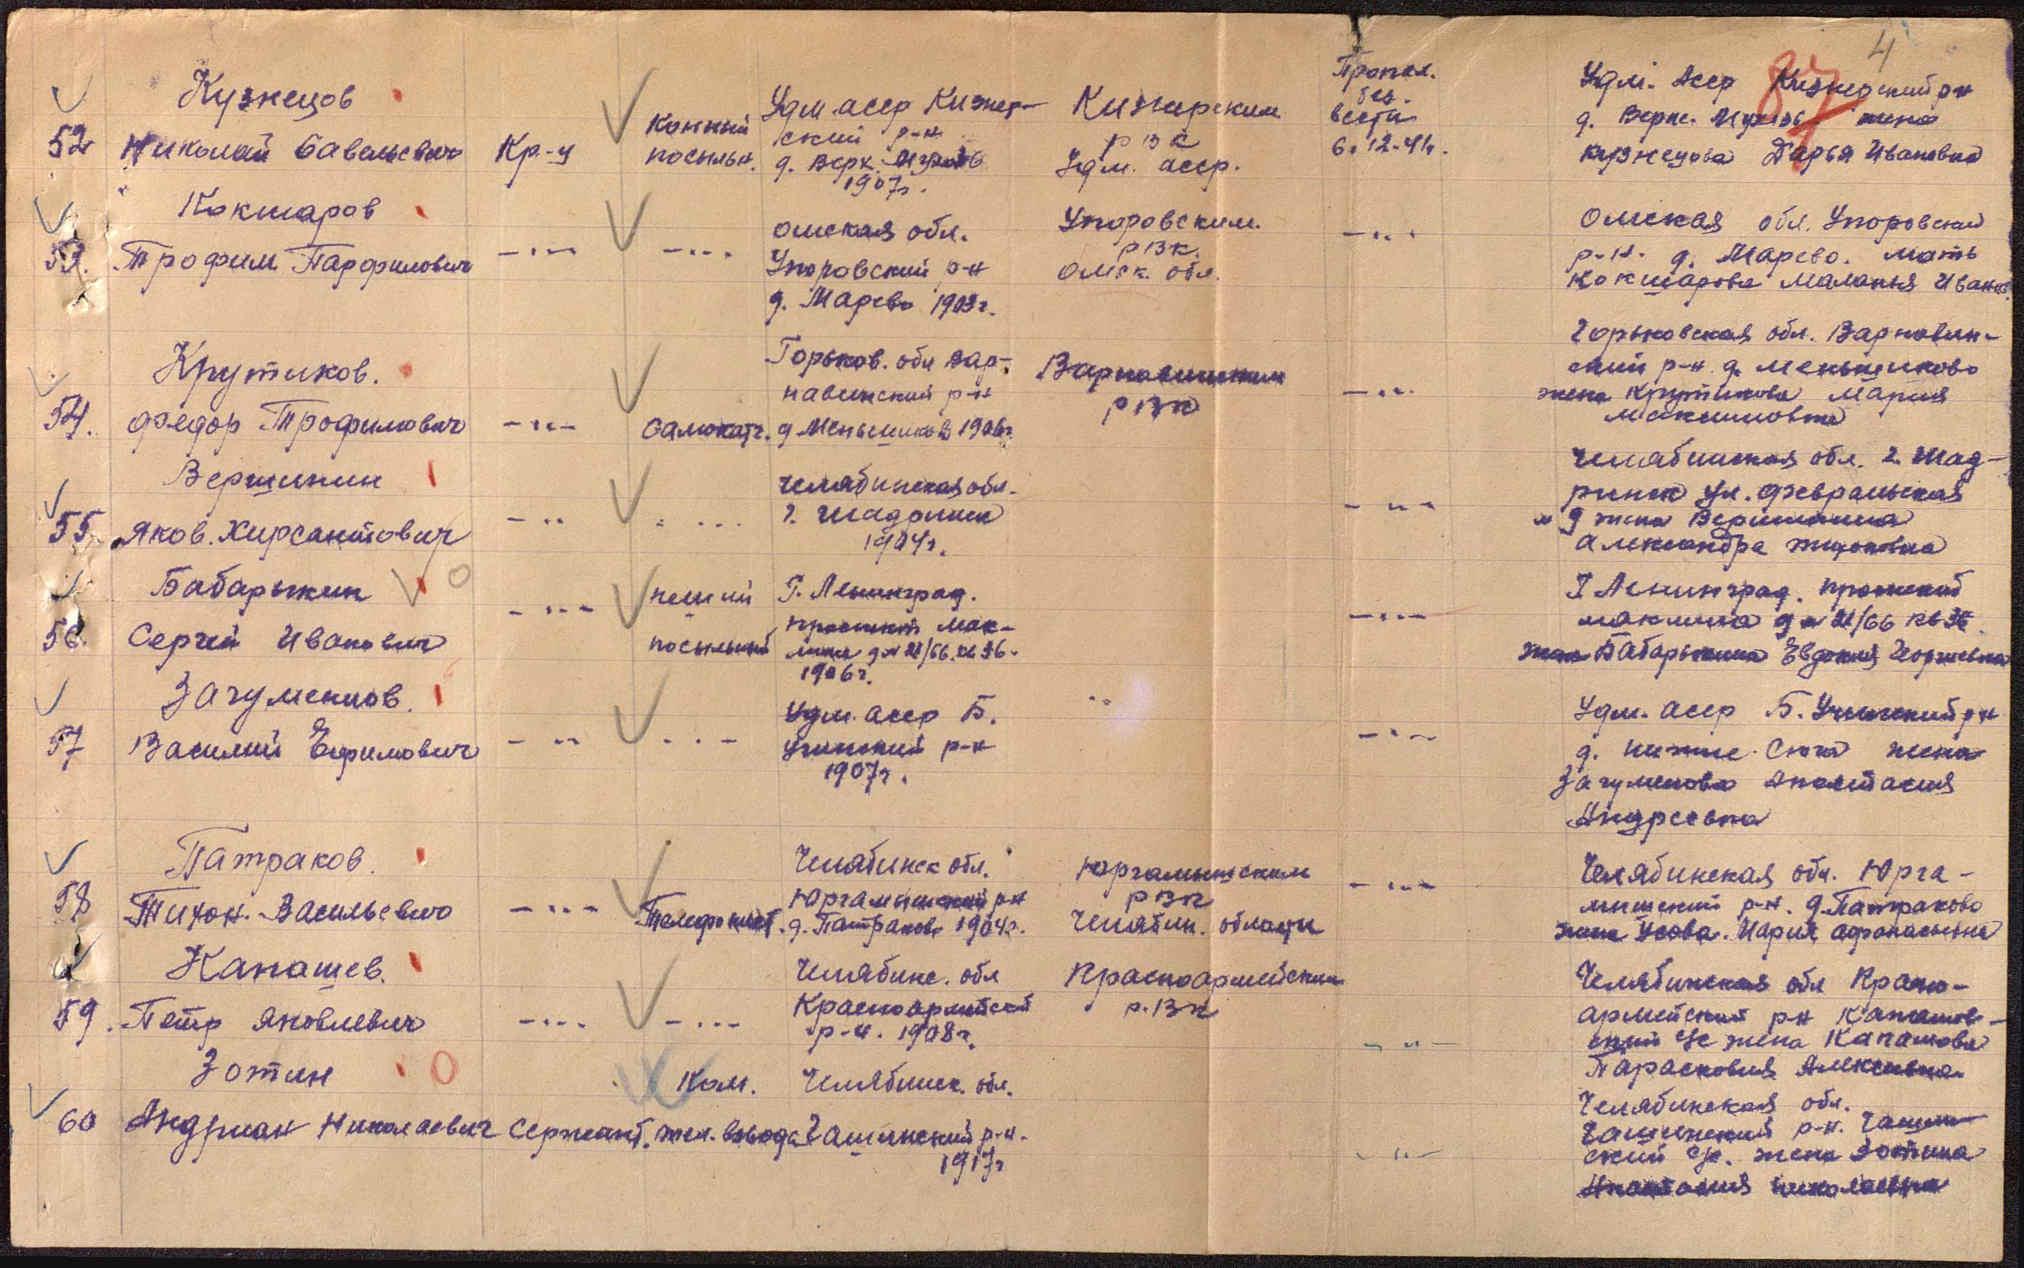 4
87
Кузнецов
52 Николай Савельевич
Кр-ц
Конный
посыльн.
Удм. асср Кизнер-
ский р-н
д. Верх.
1907г.
Кизнерским
рвк
Удм. асср.
Пропал.
без.
вести
6.12-41.
Удм. Асср Кизнерский рн
д. Верхн. жена
Кузнецова Дарья Ивановна
Кокшаров
53. Трофим Парфилович
-"-
-"-
Омская обл.
Упоровский р-н
д. Марево 1903г.
Упоровским.
рвк.
Омск. обл.
-"-
Омская обл. Упоровский
р-н. д. Марево. мать
Кокшарова Маланья Иванов.
Крутиков.
54. Федор Трофимович
-"-
Самокатч.
Горьков. обл Вар-
навинский р-н
д Меньшиково 1906г.
Варнавинским
рвк
-"-
Горьковская обл. Варнавин-
ский р-н. д. Меньшиково
жена Крутикова Мария
Максимовна
Вершинин
55 Яков. Хирсантович
-"-
-"-
Челябинская обл.
г. Шадринск
1904г.
-"-
Челябинская обл. г. Шад-
ринск ул. Февральская
9 жена Вершинина
Александра
Бабарыкин
56. Сергей Иванович
-"-
пеший
посыльный
Г. Ленинград.
проспект Мак-
лина д № 21/66. кв 36.
1906г.
-"-
Г Ленинград. проспект
маклина д № 21/66 кв 36.
жена Бабарыкина Евдокия
Загуменнов.
57 Василий Ефимович
-"-
-"-
Удм. асср Б.
Учинский р-н
1907г.
-"-
Удм. асср Б. Учинский рн
д. Нижне. Сюга жена
Загуменова Анастасия
Андреевна
Патраков.
58 Тихон. Васильевич
-"-
Телефонист.
Челябинск обл.
Юргамышский рн
д. Патраково 1904г.
Юргамышским
рвк
Челябин. области
-"-
Челябинская обл. Юрга-
мышский р-н. д. Патраково
жена Усова. Мария Афонасьевна
Капашев.
59. Петр Яковлевич
-"-
-"-
Челябинс. обл
Красноармейский
р-н. 1908г.
Красноармейским
р.вк
-"-
Челябинская обл Красно-
армейский рн Капашов-
ский с/с жена Капашова
Парасковия Алексевна.
Зотин
60 Андриан Николаевич
Сержант.
Ком.
взвода
Челябинск. обл.
Чашинский р-н.
1917г
-"-
Челябинская обл.
Чашинский р-н. Чашин-
ский с/с. жена Зотина
Анастасия Николаевна